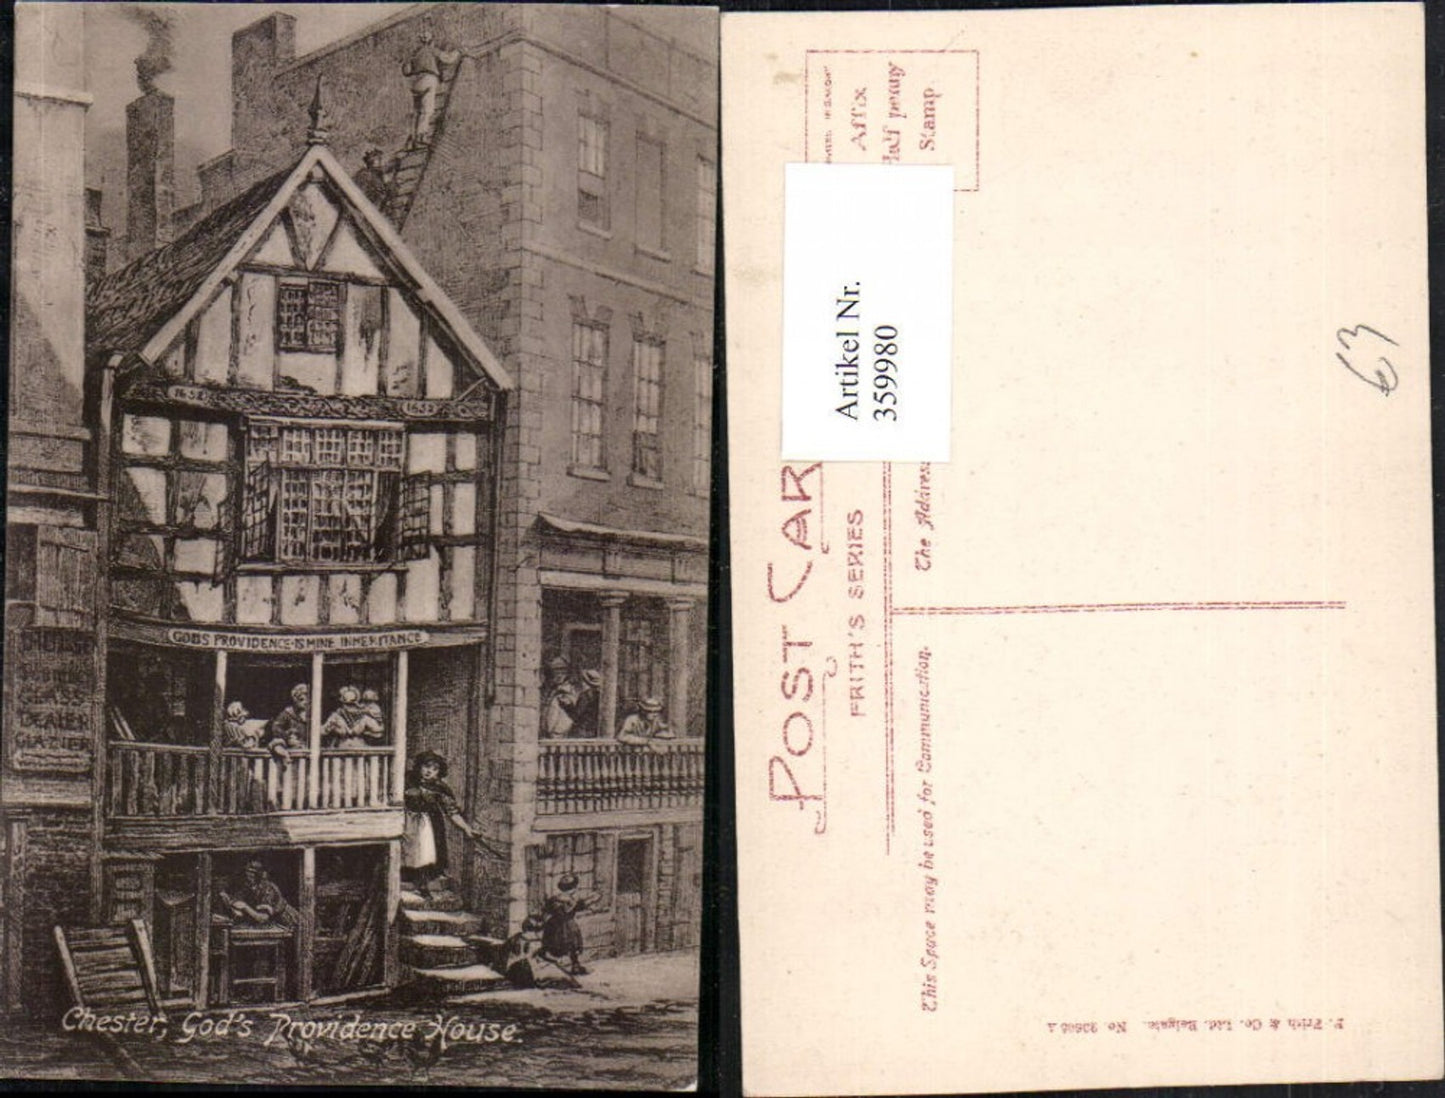 1652
1652
GOD'S PROVIDENCE·IS MINE INHERITANCE
GLASS
DEALER
GLAZIER
Chester, God's Providence House.
Affix
Half penny
Stamp
Artikel Nr.
359980
POST CAR
FRITH'S SERIES
The Address
This Space may be used for Communication.
F. Frith & Co. Ltd. Reigate. No
63